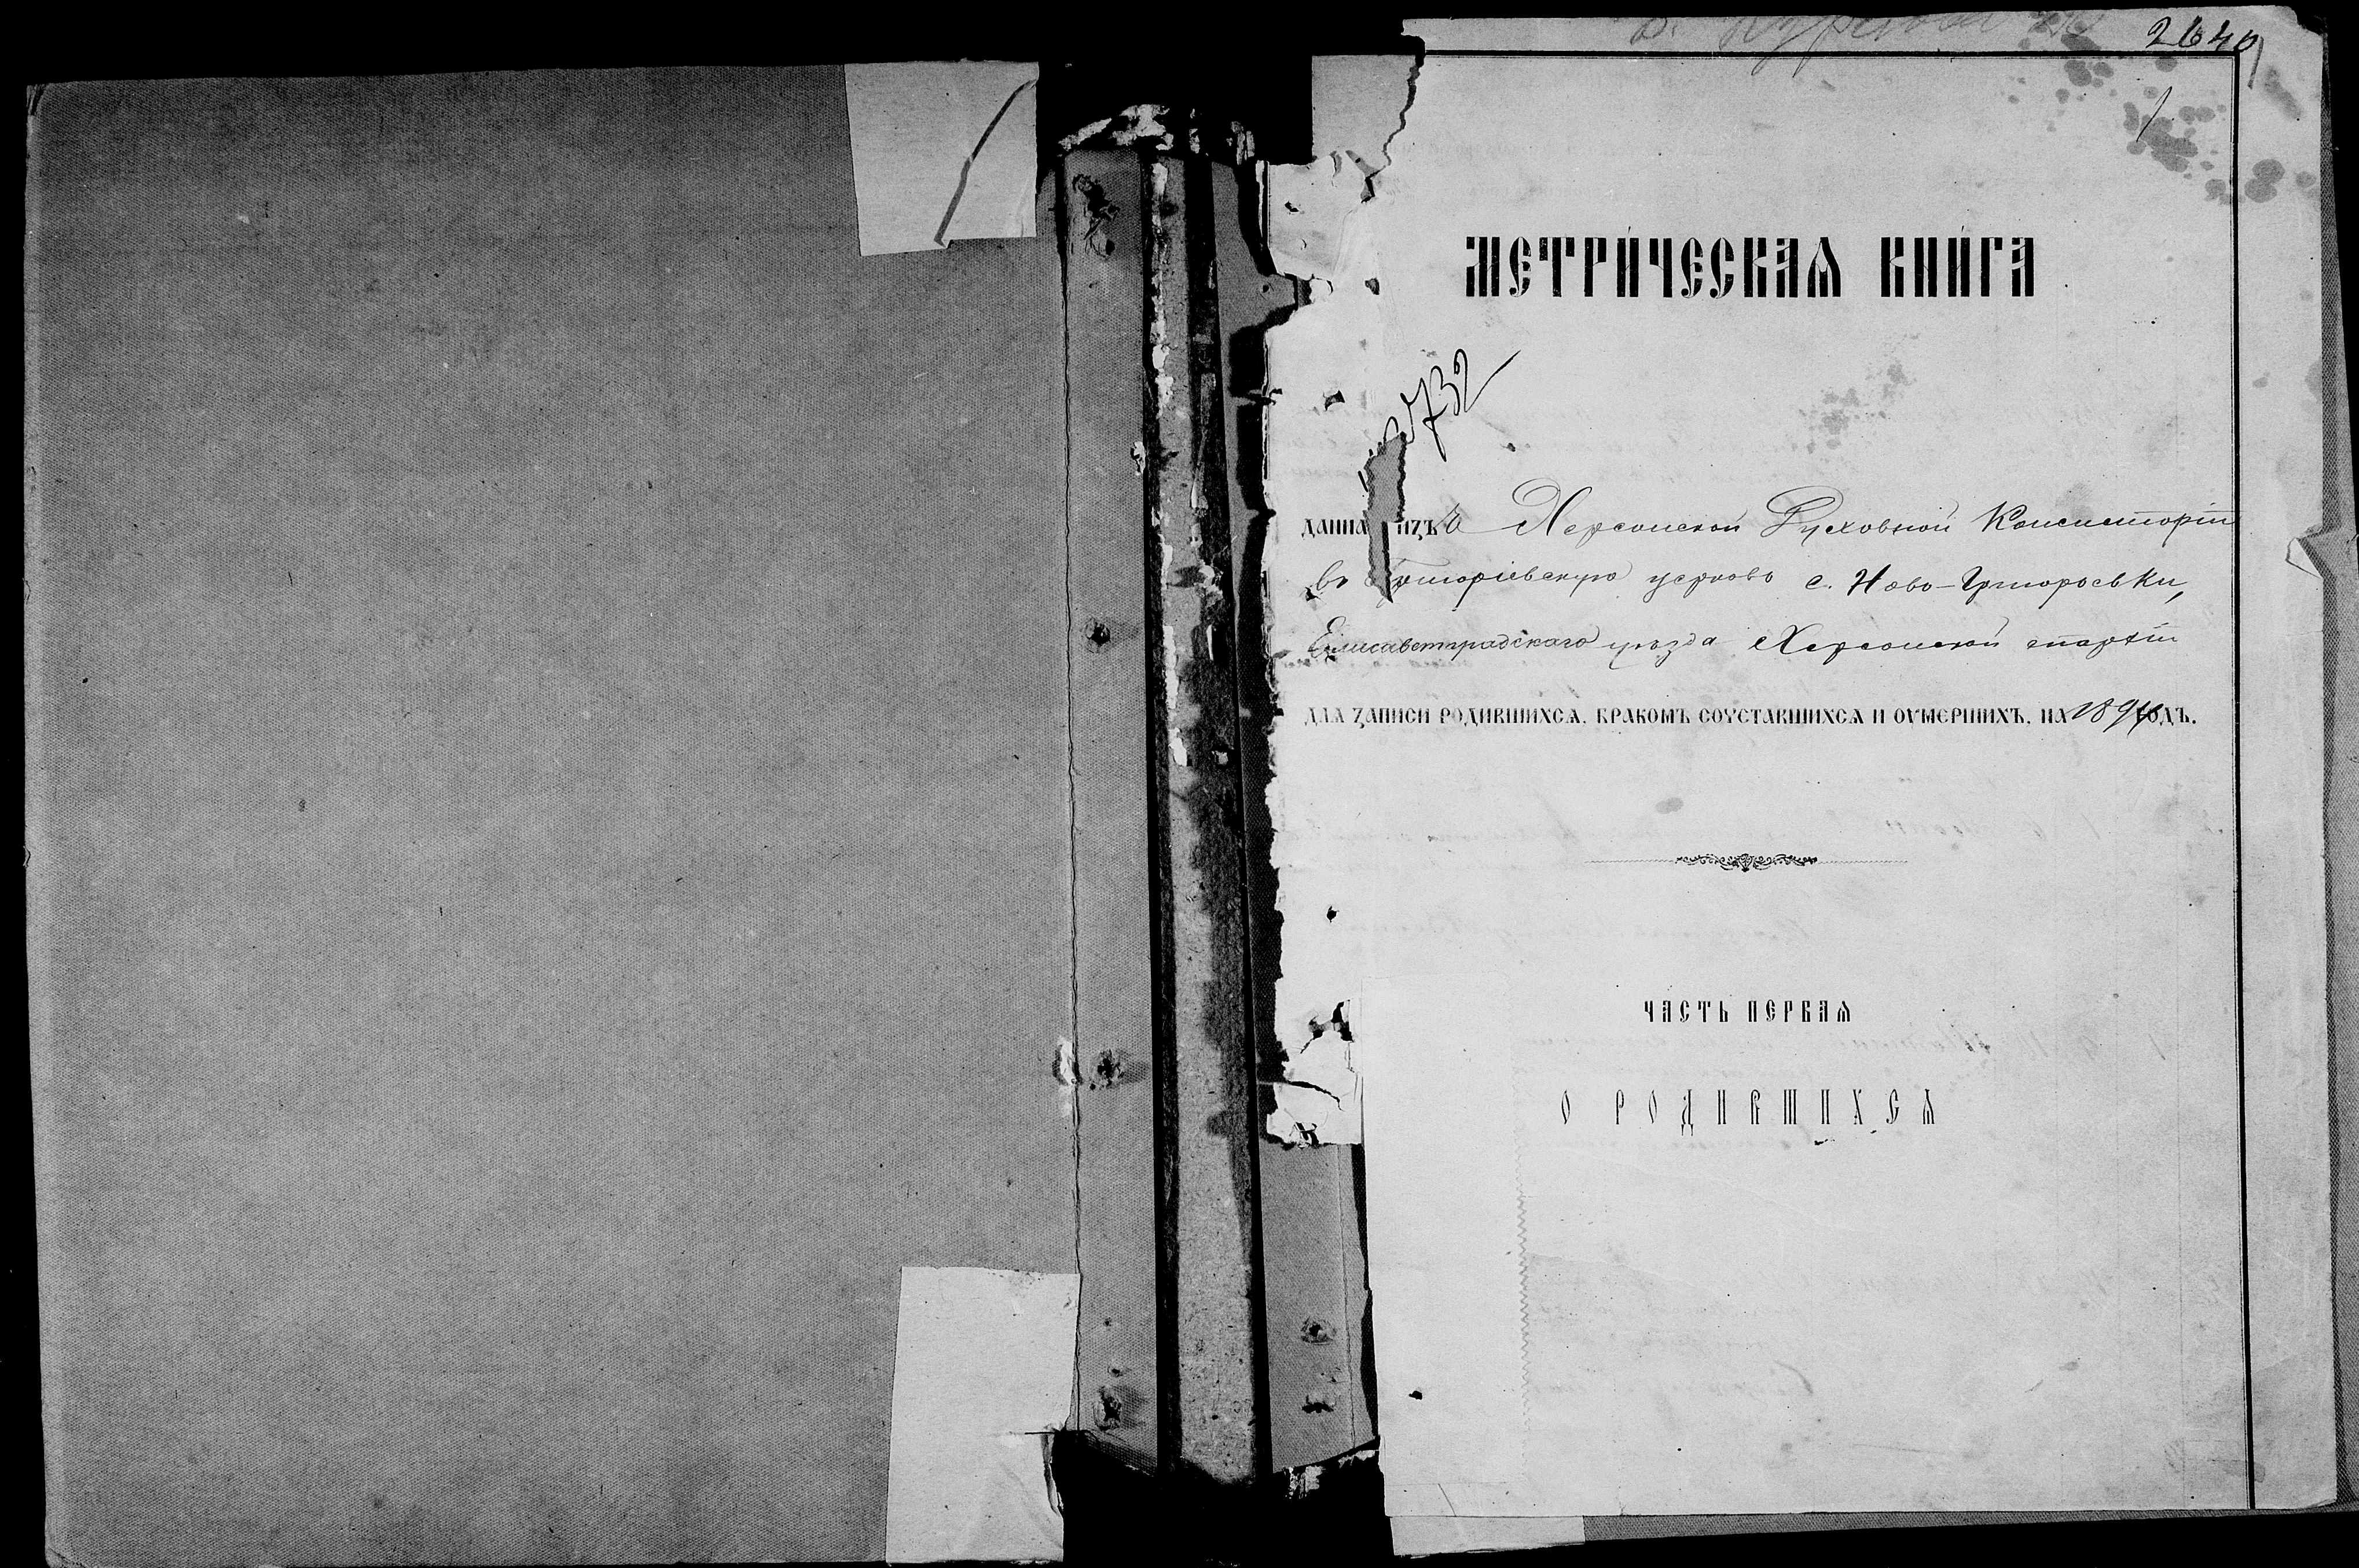 2640
1
МЕТРИ́ЧЕСКАѦ КНИ́ГА
732
ДАННА ИЗЪ Херсонской Духовной Консисторіи
въ церковь с. Ново-Григоровки,
Елисаветградскаго уѣзда Херсонской епархіи
ДЛѦ ЗАПИСИ РОДИВШИХСѦ, БРАКОМЪ СОЧЕТАВШИХСѦ И ОУМЕРШИХЪ, НА 1894 ГОДЪ.
ЧАСТЬ ПЕРВАѦ
О РОДИВШИХСѦ